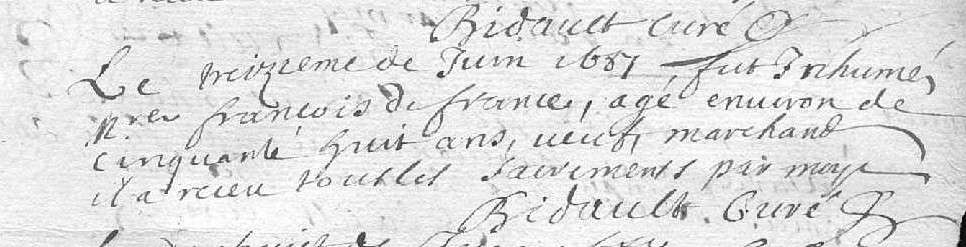 Bidault Curé
Le treizieme de Juin 1687, fut Inhumé
francois de france, agé enuiron de
cinquante huit ans, ueuf, marchand
il a receu tout les sacrements par moy
Bidault. Curé